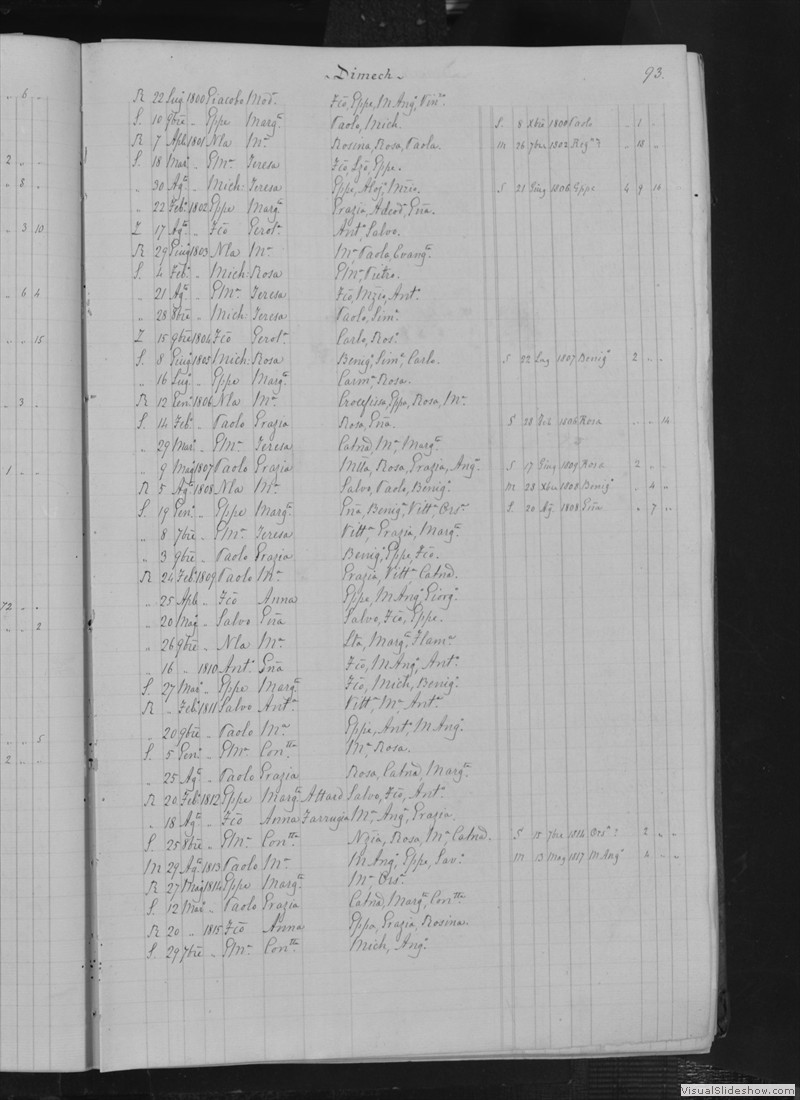 Dimech 93.
R 22 Lug 1800 Giacobo Mod. Fco, Gppe, M Ang, Vin.
S. 10 9bre " Gppe Marg. Paolo, Mich. S. 8 Xbre 1800 Paolo " 1 "
R 7 Aple 1801 Nla Ma Rosina, Rosa, Paola. M 26 7bre 1802 " 18 "
S. 18 Mar. " Teresa Fco, Gppe.
" 30 Ag. " Mich. Teresa Gppe, Aloj. S 21 Giug 1806 Gppe 4 9 10
" 22 Feb. 1802 Gppe Marg. Grazia,
Z 17 Ag. " Fco Gerol. Ant. Salvo.
R 29 Giug 1803 Nla Ma Ma Paolo, Evang.
S. 4 Feb. " Mich. Rosa Pietro.
" 21 Ag. " Teresa Fco, Ant.
" 28 8bre " Mich. Teresa Paolo, Sim.
Z 15 9bre 1804 Fco Gerol. Carlo, Ros.
S. 8 Giug 1805 Mich. Rosa Benig. Sim. Carlo. S 22 Lug 1807 Benig. 2 " "
" 16 Lug. " Gppe Marg. Carm. Rosa.
R 12 Gen. 1806 Nla Ma Crocefissa, Gppa, Rosa, Ma
S. 14 Feb. " Paolo Grazia Rosa, 1806 Rosa " " 14
" 29 Mar. " Teresa Catna, Ma Marg.
" 9 Mag 1807 Paolo Grazia Rosa, Grazia, Ang. S 17 Giug 1809 Rosa 2 " "
R 5 Ag. 1808 Nla Ma Salvo, Paolo, Benig. M 28 Xbre 1808 Benig. " 4 "
S. 19 Gen. " Gppe Marg. Benig. Vitt. Ors. S. 20 Ag. 1808 " 7 "
" 8 7bre " Teresa Vitt. Grazia, Marg.
" 3 9bre " Paolo Grazia Benig. Gppe, Fco.
R 24 Feb. 1809 Paolo Ma Grazia, Vitt. Catna.
" 25 Aple " Fco Anna Gppe, M Ang. Giorg.
" 20 Mag. " Salvo Salvo, Fco, Gppe.
" 26 9bre " Nla Ma Marg.
" 16 " 1810 Ant. Fco, M Ang. Ant.
S. 27 Mar. " Gppe Marg. Fco, Mich, Benig.
R " Feb. 1811 Salvo Ant. Vitt. Ma Ant.
" 20 9bre " Paolo Ma Gppe, Ant. M Ang.
S. 5 Gen. " Con. Ma Rosa.
" 25 Ag. " Paolo Grazia Rosa, Catna, Marg.
R 20 Feb. 1812 Gppe Marg. Attard Salvo, Fco, Ant.
" 18 Ag. " Fco Anna Farrugia Ma Ang. Grazia.
S. 25 8bre " Con. Rosa, Ma Catna. S 15 7bre 1814 Ors. ? 2 " "
M 29 Ag. 1813 Paolo Ma M Ang. Gppe, Sav. M 13 Mag 1817 M Ang. 4 " "
R 27 Mag 1814 Gppe Marg. Ma Ors.
S. 12 Mar. " Paolo Grazia Catna, Marg. Con.
R 20 " 1815 Fco Anna Gppa, Grazia, Rosina.
S. 29 7bre " Con. Mich, Ang.
VisualSlideshow.com